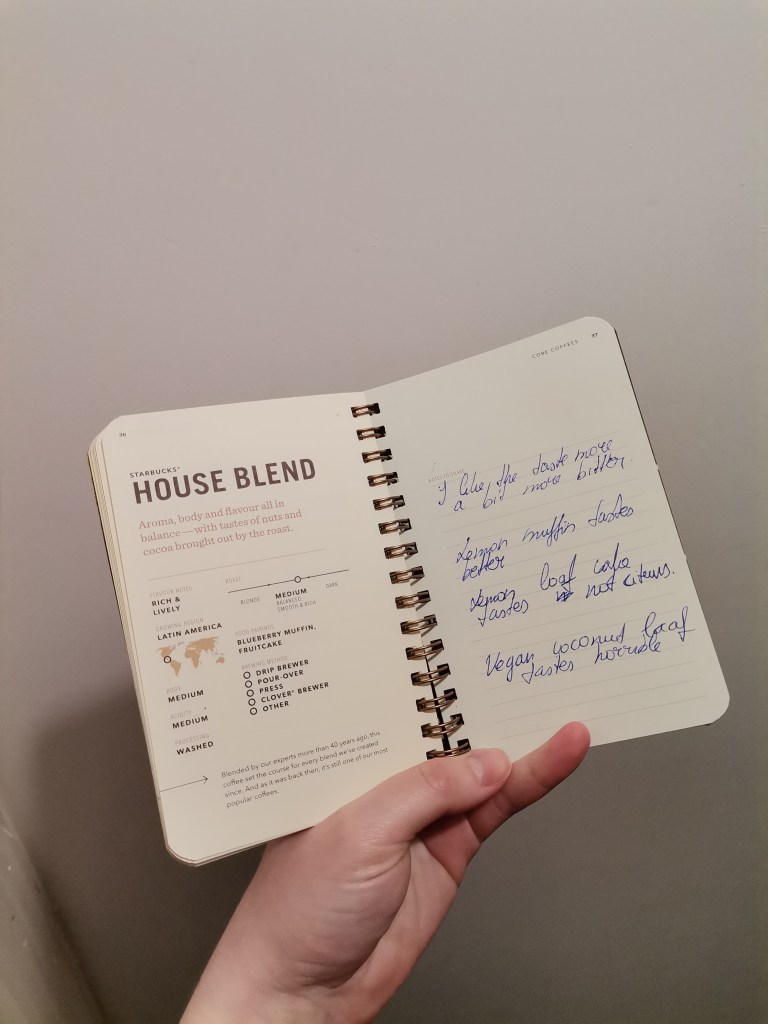 36
STARBUCKS®
HOUSE BLEND
Aroma, body and flavour all in
balance—with tastes of nuts and
cocoa brought out by the roast.
FLAVOUR NOTES
RICH &
LIVELY
GROWING REGION
LATIN AMERICA
BODY
MEDIUM
ACIDITY
MEDIUM
PROCESSING
WASHED
ROAST
BLONDE
MEDIUM
BALANCED,
SMOOTH & RICH
DARK
FOOD PAIRINGS
BLUEBERRY MUFFIN,
FRUITCAKE
BREWING METHOD
DRIP BREWER
POUR-OVER
PRESS
CLOVER® BREWER
OTHER
Blended by our experts more than 40 years ago, this
coffee set the course for every blend we've created
since. And as it was back then, it's still one of our most
popular coffees.
CORE COFFEES 37
I like the taste more
a bit more bitter.
Lemon muffin tastes
better
Lemon loaf cake
tastes not citrus.
Vegan coconut loaf
tastes horrible